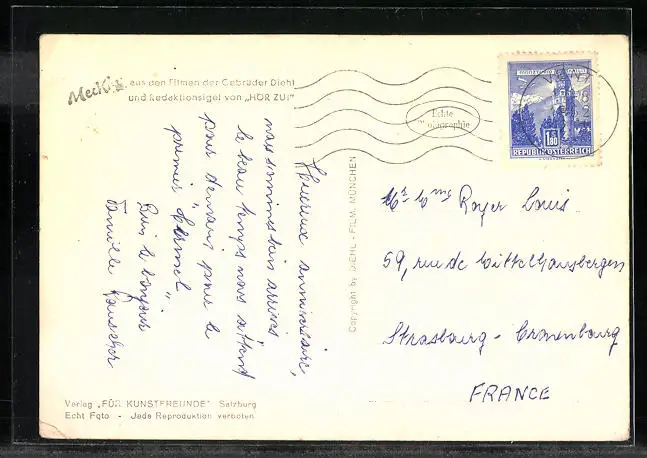 Mecki, aus den Filmen der Gebrüder Diehl
und Redaktionsigel von „HÖR ZU!"
Echte
Photographie
1.80
REPUBLIK ÖSTERREICH
Heureux anniversaire,
nous sommes bien arrivés
le beau temps nous attend
pour demain pour le
premier "Carmel"
Bien le bonjour
Famille Rauscher
Copyright by DIEHL - FILM, MÜNCHEN
Mr et Mme Royer Louis
59, rue de Wittelhausbergen
Strasbourg - Cronenbourg
FRANCE
Verlag „FÜR KUNSTFREUNDE" Salzburg
Echt Foto - Jede Reproduktion verboten